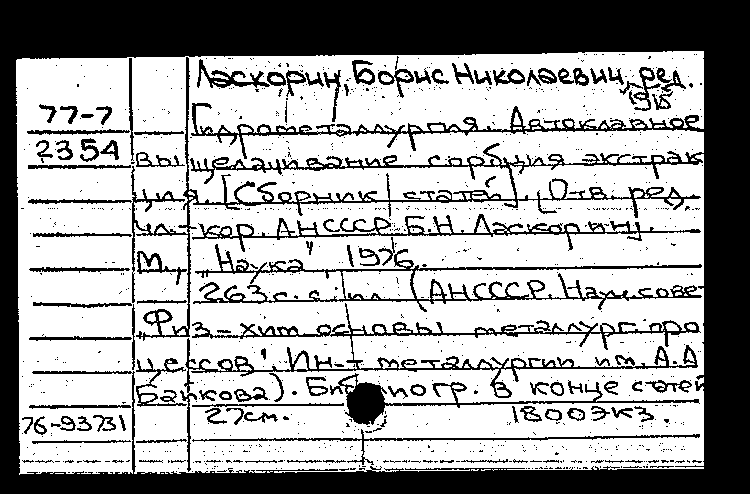 Ласкорин, Борис Николаевич, ред.
1915
77-7
Гидрометаллургия. Автоклавное
2354
выщелачивание сорбция экстрак
ция. [Сборник статей]. [Отв. ред.
чл.-кор. АНСССР Б.Н. Ласкорин].
М., „Наука", 1976.
263 с. с ил (АНСССР. Науч. сове
„Физ-хим основы металлург. про
цессов". Ин-т металлургии им. А.А
Байкова). Библиогр. в конце статей
76-93731
27см. 1800экз.